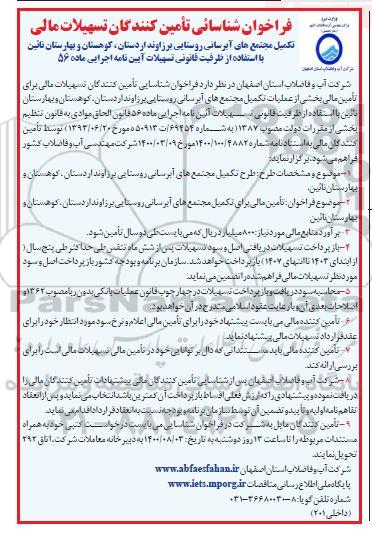 فراخوان شناسائی تأمین کنندگان تسهیلات مالی
تکمیل مجتمع های آبرسانی روستایی برزاوند اردستان ، کوهستان و بهارستان نائین
با استفاده از ظرفیت قانونی تسهیلات آیین نامه اجرایی ماده ۵۶
شرکت آب و فاضلاب استان اصفهان
شرکت آب و فاضلاب استان اصفهان در نظر دارد فراخوان شناسایی تأمین کنندگان تسهیلات مالی برای
تأمین مالی بخشی از عملیات تکمیل مجتمع های آبرسانی روستایی برزاوند اردستان ، کوهستان و بهارستان
نائین با استفاده از ظرفیت قانونی تسهیلات آئین نامه اجرایی ماده ۵۶ قانون الحاق موادی به قانون تنظیم
بخشی از مقررات دولت مصوب ۱۳۸۷ (به شماره ۶۹۴۵۴/ت۵۰۹۱۳ه مورخ ۱۳۹۳/۰۶/۲۰) توسط تأمین
کنندگان مالی به استناد نامه شماره ۱۴۰۰/۱۰۰/۴۸۸۲ مورخ ۱۴۰۰/۰۳/۰۹ شرکت مهندسی آب و فاضلاب کشور
فراهم می شود، برگزار نماید:
۱- موضوع و مشخصات طرح: طرح تکمیل مجتمع های آبرسانی روستایی برزاوند اردستان ، کوهستان و
بهارستان نائین
۲- موضوع فراخوان: تأمین مالی برای تکمیل مجتمع های آبرسانی روستایی برزاوند اردستان ، کوهستان و
بهارستان نائین
۳- برآورد منابع مالی مورد نیاز: ۸۰۰ میلیارد ریال که می بایست طی دو سال تأمین شود.
۴- بازپرداخت تسهیلات دریافتی اصل و سود تسهیلات پس از شش ماه تنفس طی حداکثر طی پنج سال (
از ابتدای ۱۴۰۳ تا انتهای ۱۴۰۷) بازپرداخت خواهد شد. سازمان برنامه و بودجه کشور بازپرداخت اصل و سود
مورد نظر تسهیلات مالی فراهم شده را تضمین می نماید.
۵- محاسبه سود دریافت و بازپرداخت تسهیلات در چهارچوب قانون عملیات بانکی بدون ربا مصوب ۱۳۶۲ و
اصلاحات بعدی آن و با رعایت عقود اسلامی مندرج در آن خواهد بود.
۶- تأمین کننده مالی می بایست پیشنهاد خود را برای تأمین مالی اعلام و نرخ سود مورد انتظار خود را برای
عقد قرارداد تسهیلات مالی پیشنهاد نماید.
۷- تأمین کننده مالی باید مستنداتی که دال بر توانایی خود در تأمین مالی تسهیلات مالی است را برای
بررسی ارائه کند.
۸- شرکت آب و فاضلاب اصفهان پس از شناسایی تأمین کنندگان مالی پیشنهادات تأمین کنندگان مالی را
دریافت نموده و پیشنهادی را که ارزش فعلی اقساط بازپرداخت آن کمترین باشد انتخاب می نماید و پس از انعقاد
تفاهم نامه اولیه و تأیید و تضمین آن توسط سازمان برنامه و بودجه نسبت به انعقاد قرارداد اقدام می نماید.
۹- تأمین کنندگان مایل به شرکت در فراخوان شناسایی می بایست درخواست کتبی خود به همراه
مستندات مربوطه را تا ساعت ۱۳ روز دوشنبه به تاریخ: ۱۴۰۰/۰۸/۰۳ به دبیرخانه معاملات شرکت، اتاق ۲۹۲
تحویل نمایند.
شرکت آب و فاضلاب استان اصفهان www.abfaesfahan.ir
پایگاه ملی اطلاع رسانی مناقصات www.iets.mporg.ir
شماره تلفن گویا: ۸-۳۶۶۸۰۰۳۰-۰۳۱
(داخلی ۲۰۱)